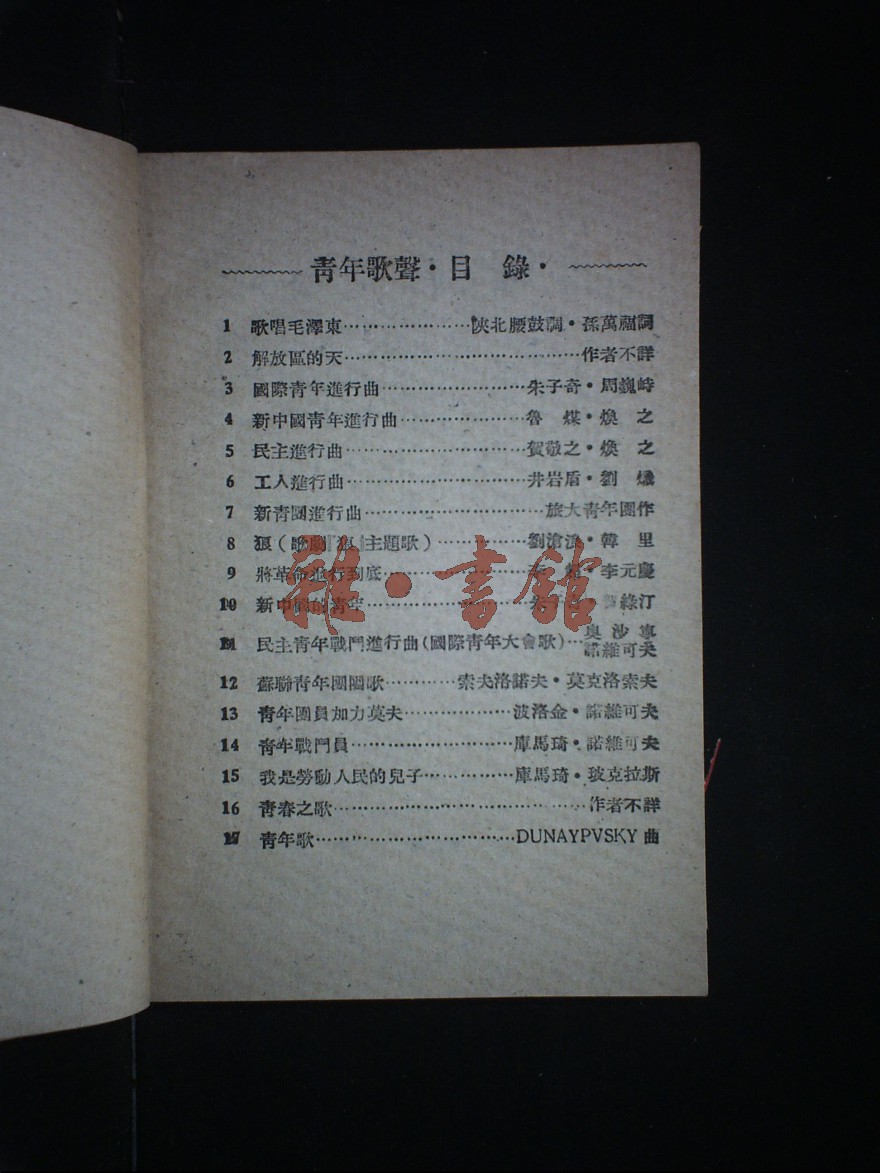 青年歌聲・目 錄・
1 歌唱毛澤東…………………陝北腰鼓調・孫萬福詞
2 解放區的天…………………………………作者不詳
3 國際青年進行曲……………………朱子奇・周巍峙
4 新中國青年進行曲…………………魯 煤・煥 之
5 民主進行曲…………………………賀敬之・煥 之
6 工人進行曲…………………………井岩盾・劉 熾
7 新青團進行曲………………………旅大青年團作
8 狠(歌劇「狠」主題歌)……………劉滄浪・韓 里
9 將革命進行到底……………………・李元慶
10 新中國的青年………………………朱子 綠汀
11 民主青年戰鬥進行曲(國際青年大會歌)…奧沙寧 諾維可夫
12 蘇聯青年團團歌…………索夫洛諾夫・莫克洛索夫
13 青年團員加力莫夫………………波洛金・諾維可夫
14 青年戰鬥員………………………庫馬琦・諾維可夫
15 我是勞動人民的兒子……………庫馬琦・玻克拉斯
16 青春之歌……………………………………作者不詳
17 青年歌……………………………DUNAYPVSKY 曲
雜・書館